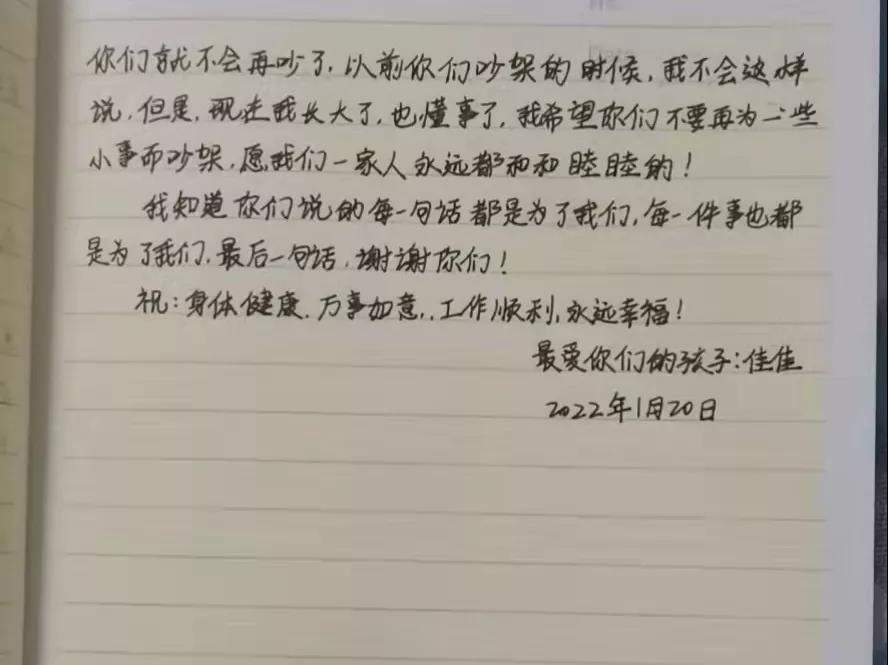 你们就不会再吵了，以前你们吵架的时候，我不会这样
说，但是，现在我长大了，也懂事了，我希望你们不要再为一些
小事而吵架，愿我们一家人永远都和和睦睦的！
我知道你们说的每一句话都是为了我们，每一件事也都
是为了我们，最后一句话，谢谢你们！
祝：身体健康，万事如意，，工作顺利，永远幸福！
最爱你们的孩子：佳佳
2022年1月20日